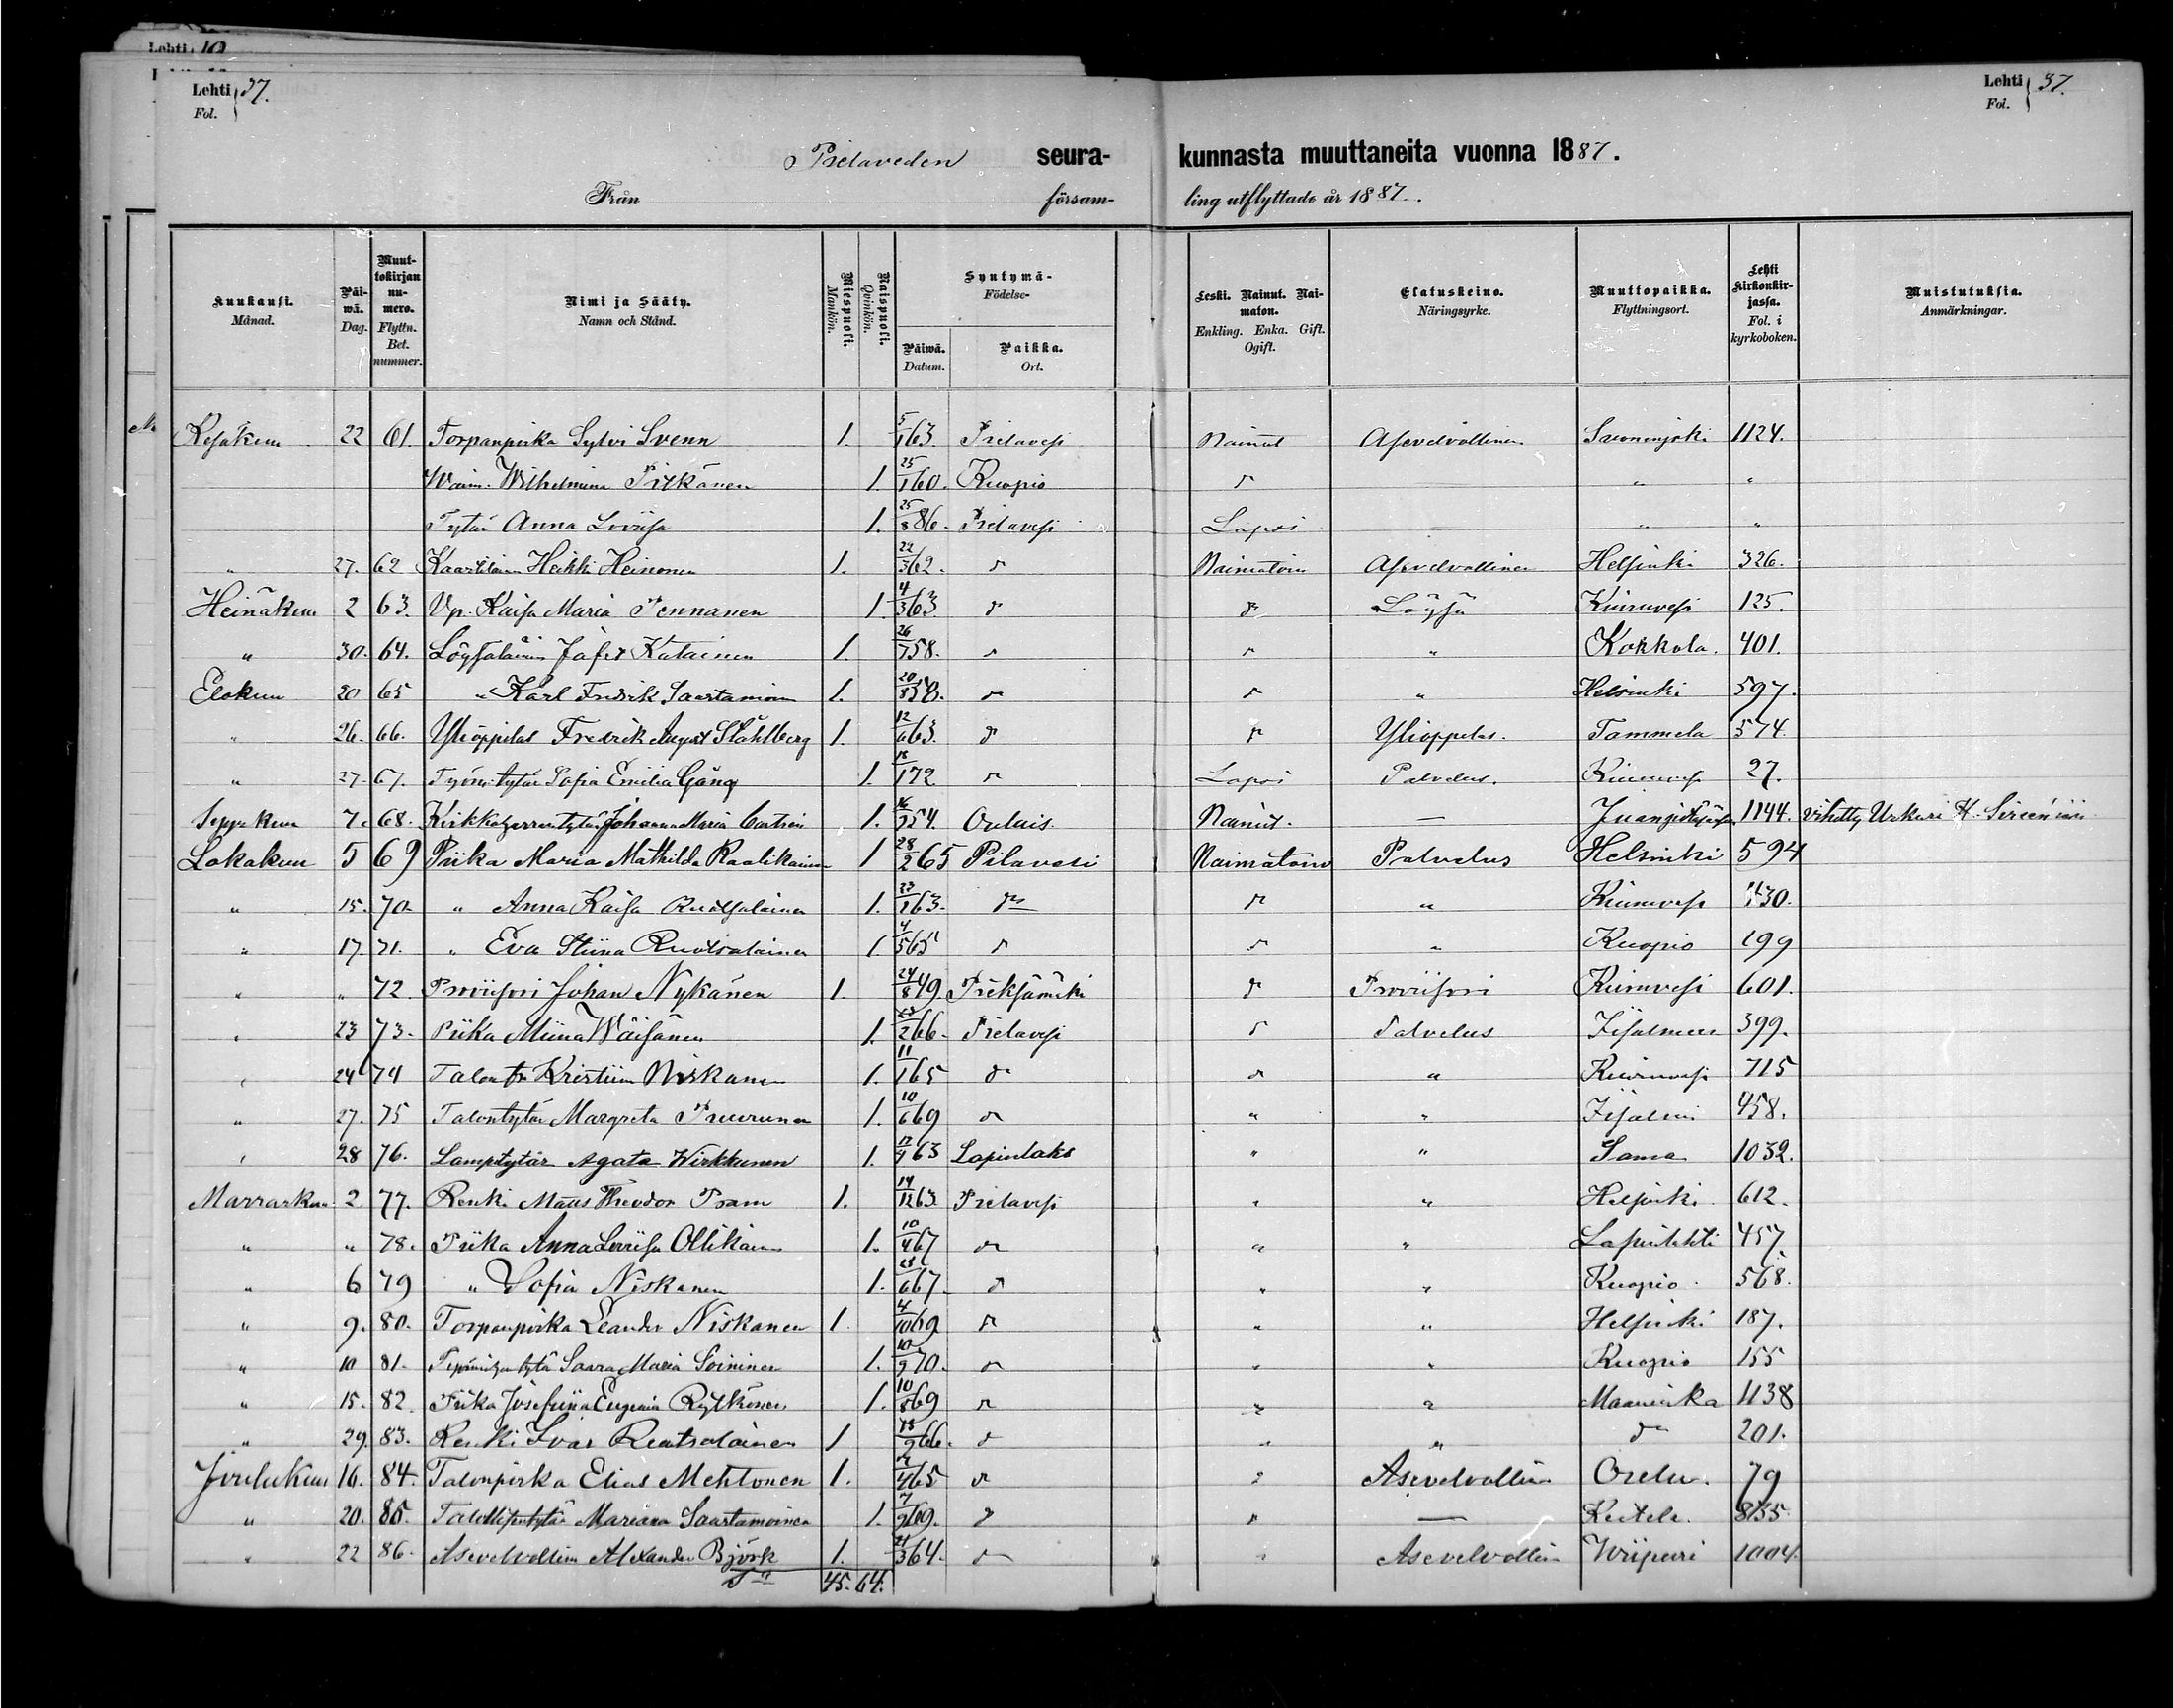 Lehti 10
Lehti Fol. 37.
Lehti Fol. 37.
Pielaveden seura- kunnasta muuttaneita vuonna 1887.
Från försam- ling utflyttade år 1887.
Kuukausi. Månad. Päi-wä. Dag. Muut-tokirjan nu-mero. Flyttn. Bet. nummer. Nimi ja Sääty. Namn och Stånd. Miespuoli. Mankön. Naispuoli. Qvinkön. Syntymä- Födelse- Päiwä. Datum. Paikka. Ort. Leski. Nainut. Nai-maton. Enkling. Enka. Gift. Ogift. Elatuskeino. Näringsyrke. Muuttopaikka. Flyttningsort. Lehti kirkonkir-jassa. Fol. i kyrkoboken. Muistutuksia. Anmärkningar.
Kesäkuu 22 61. Torpanpoika Sylvi Svenn 1. 5/1 63. Pielavesi Nainut Asevelvollinen Suonenjoki 1124.
Waim. Wilhelmina Pitkänen 1. 25/1 60. Kuopio " " "
Tytär Anna Lovisa 1. 25/8 86. Pielavesi Lapsi " "
" 27. 62 Kaartilainen Heikki Heinonen 1. 22/3 62. " Naimatoin Asevelvollinen Helsinki 326.
Heinäkuu 2 63. Vp. Kaisa Maria Pennanen 1. 4/3 63 " " Löysä Kiuruvesi 125.
" 30. 64. Löysäläinen Jafet Katainen 1. 26/7 58. " " " Kokkola. 401.
Elokuu 20 65 " Karl Fredrik Saastamoinen 1. 20/8 58. " " " Helsinki 597.
" 26. 66. Ylioppilas Fredrik August Ståhlberg 1. 12/6 63. " " Ylioppilas. Tammela 574.
" 27. 67. Työm. tytär Sofia Emilia Gång 1. 1 72 " Lapsi Palvelus. Kiuruvesi 27.
Syyskuu 7. 68. Johanna Maria 1. 16/7 54. Oulais. Nainut. — 1144. vihitty Urkuri H. Sirenin
Lokakuu 5 69 Piika Maria Mathilda Raatikainen 1 28/2 65 Pilavesi Naimatoin Palvelus Helsinki 594
" 15. 70. " Anna Kaisa Ruotsalainen 1. 23/1 63. " " " Kiuruvesi 1130.
" 17. 71. " Eva Stiina Ruotsalainen 1. 4/5 65 " " " Kuopio 199
" " 72. Proviisori Johan Nykänen 1. 24/8 49. Pieksämäki " Proviisori Kiuruvesi 601.
" 23 73. Piika Miina Wäisänen 1. 23/2 66. Pielavesi " Palvelus Iisalmi 399.
" 24 74 Talontr Kristiina Niskanen 1. 11/1 65 " " " Kiuruvesi 715
" 27. 75 Talontytär Margreta Puurunen 1. 10/6 69 " " " Iisalmi 458.
" 28 76. Lampitytär Agata Wirkkunen 1. 13/4 63 Lapinlaks " " Sama 1032.
Marraskuu 2 77. Renki Matts Theodor Pram 1. 14/12 63. Pielavesi " " Helsinki 612.
" " 78. Piika Anna Loviisa Ollikainen 1. 10/4 67 " " " Lapinlahti 457.
" 6 79 " Sofia Niskanen 1. 23/6 67. " " " Kuopio. 568.
" 9. 80. Torpanpoika Leander Niskanen 1. 4/10 69 " " " Helsinki 187.
" 10 81. Saara Maria Soininen 1. 10/9 70. " " " Kuopio 155
" 15. 82. Piika Josefiina Eugenia Rytkönen 1. 10/8 69 " " " Maaninka 1138
" 29. 83. Renki Ivar Ruotsalainen 1 13/9 66. " " " " 201.
Joulukuu 16. 84. Talonpoika Elias Mehtonen 1. 4 65 " " Asevelvollin Oulu. 79
" 20. 85. Talollisentytär Mariana Saastamoinen 1. 7/9 69. " " — Keitele. 835.
" 22 86. Asevelvollinen Alexander Björk 1. 21/3 64. " " Asevelvollin Wiipuri 1004.
Sa 45. 64.